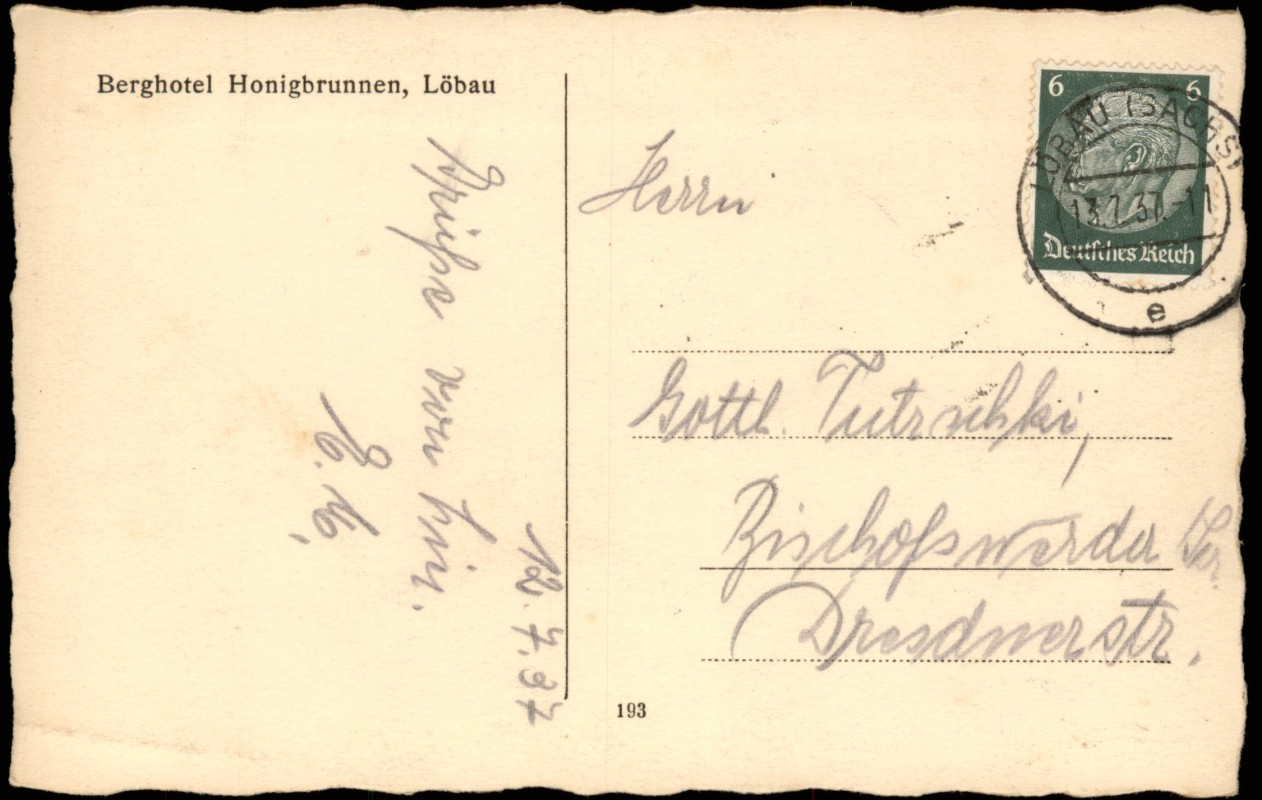 Berghotel Honigbrunnen, Löbau
Grüße von hier.
E. K.
12.7.37
Herrn
Gottl. Tutzschki,
Bischofswerda Sa.
Dresdnerstr.
193
6 6
Deutsches Reich
LÖBAU (SACHS)
13.7.37.-11
e